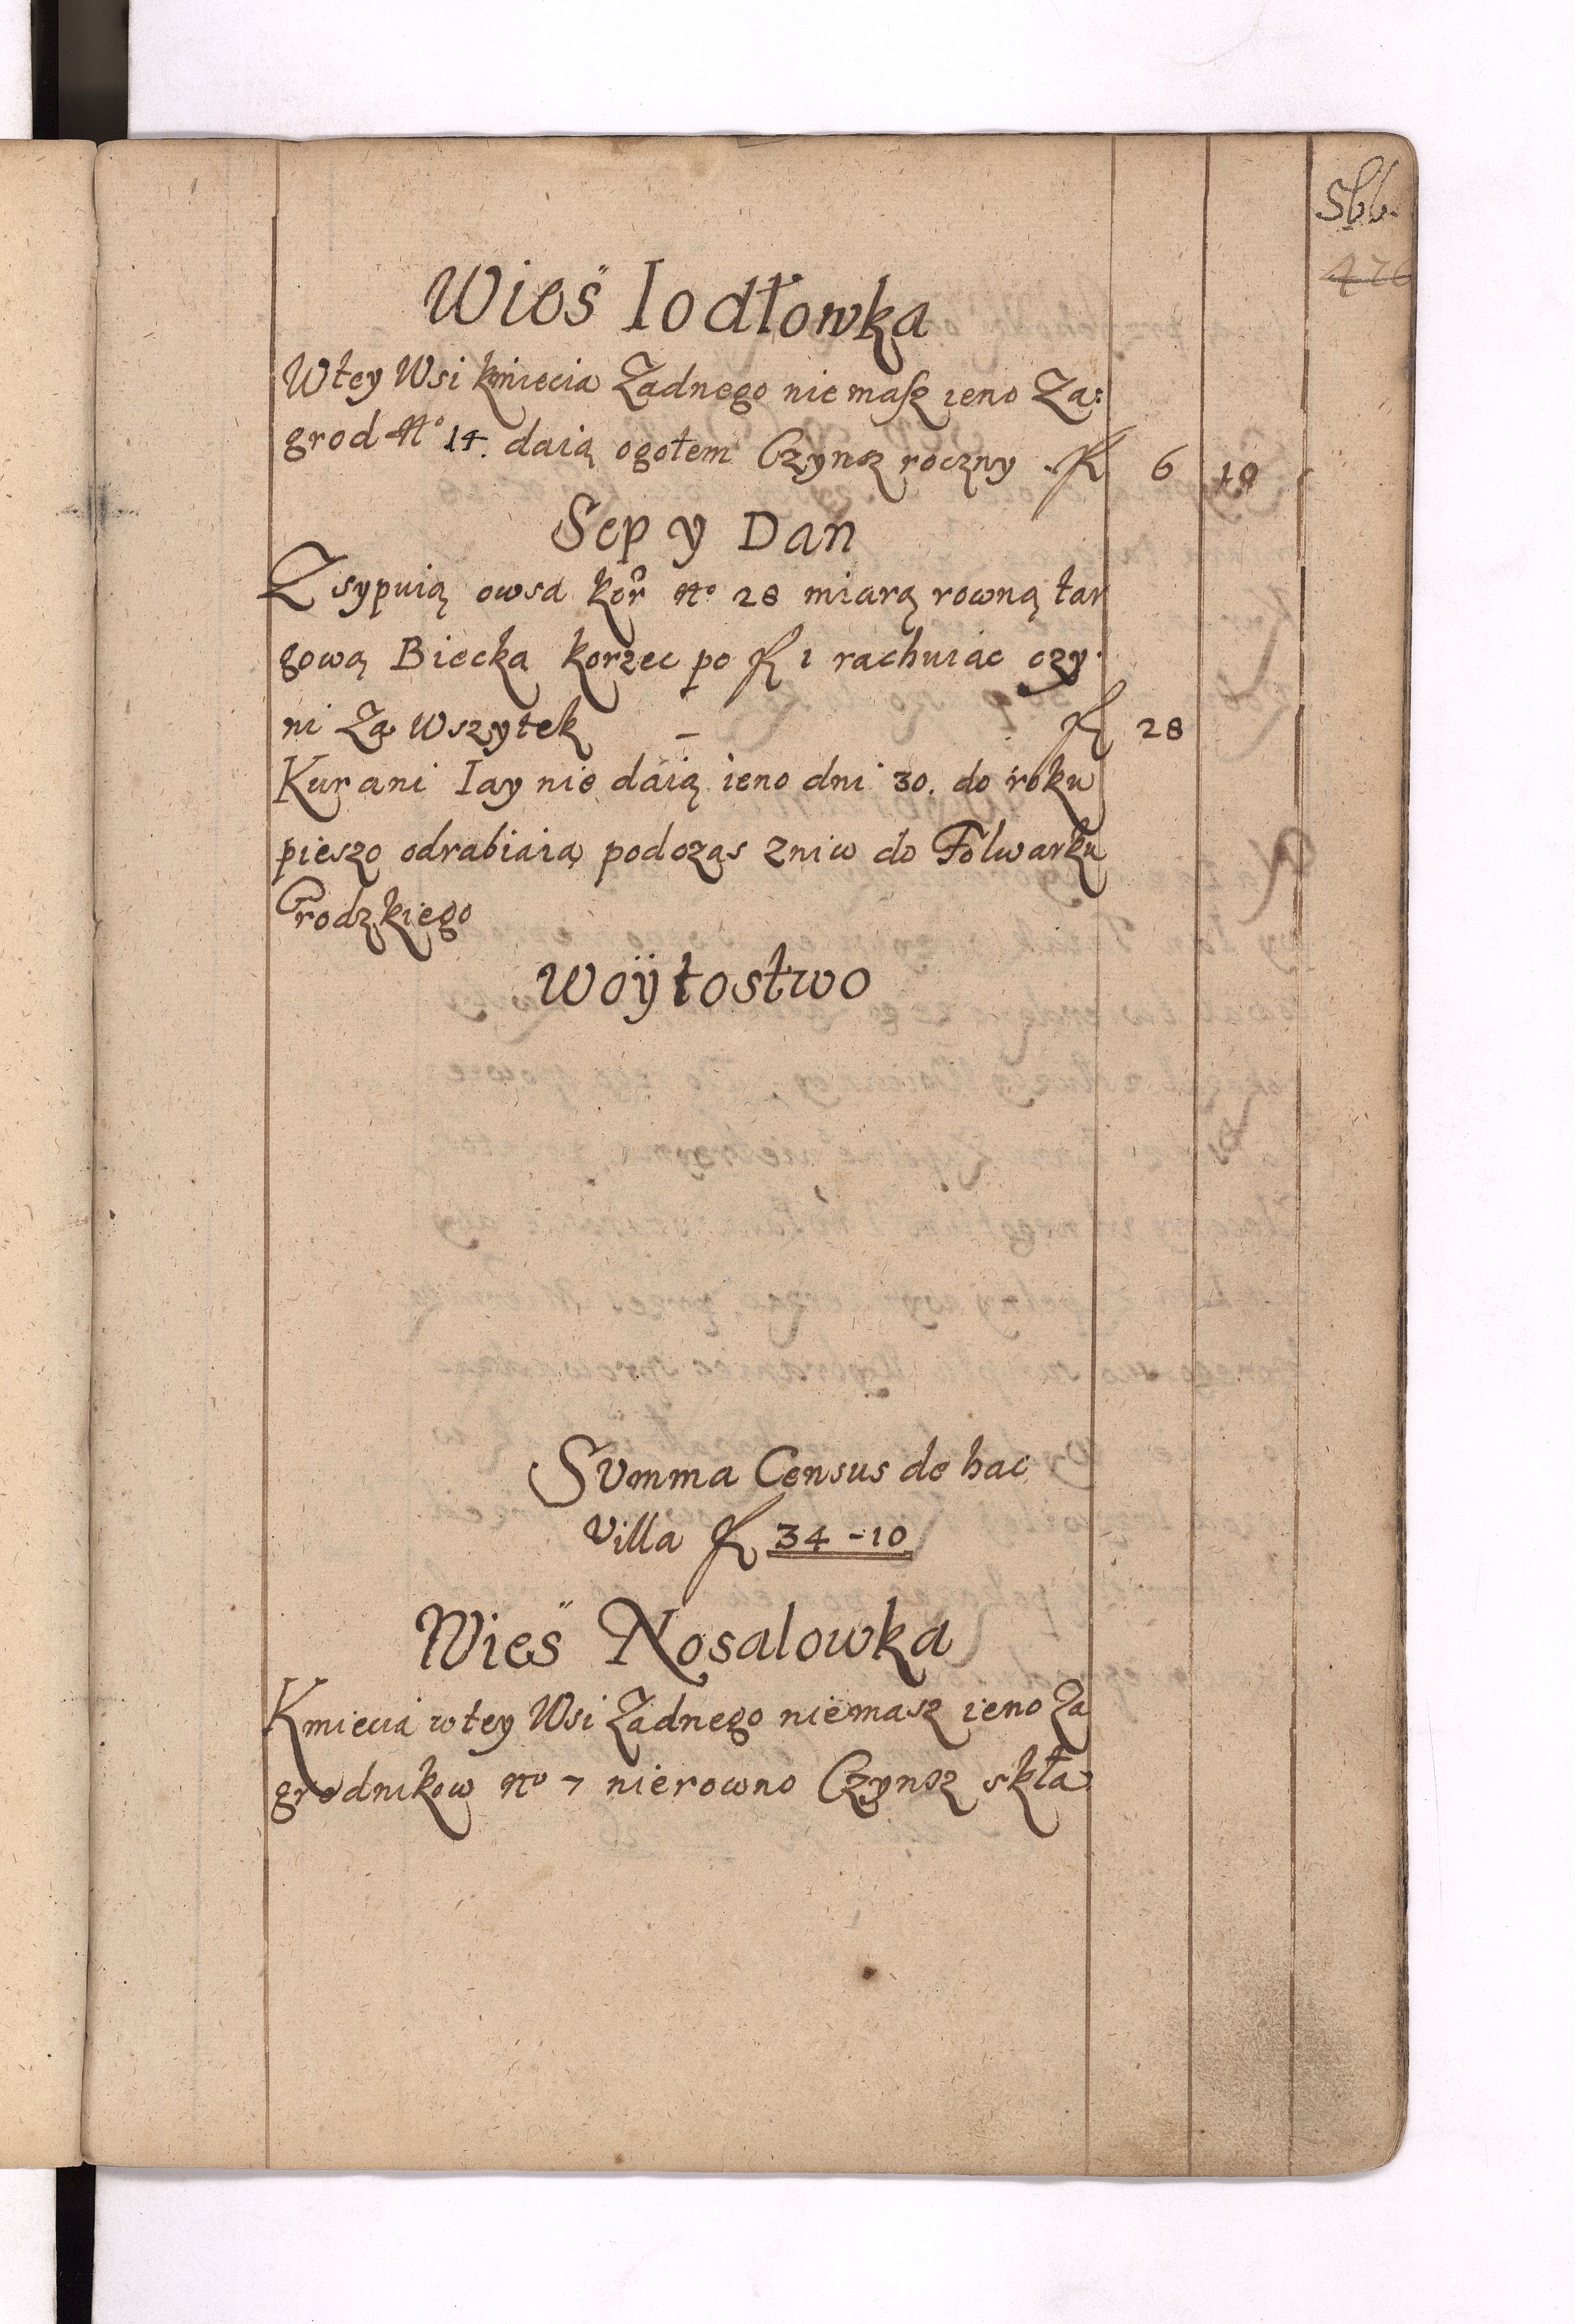 566.
476
Wieś Iodłowka
W tey Wsi kmiecia Zadnego nie masz ieno Za:
grod No 14. daią ogołem Czynsz roczny . fl 6 10
Sep y Dan
Zsypuią owsa kor No 28 miarą rowną tar
gową Biecka korzec po fl 1 rachuiac czy-
ni Za Wszytek – fl 28
Kur ani Iay nie daią ieno dni 30. do roku
pieszo odrabiaią podczas zniw do Folwarku
Grodzkiego
Woÿtostwo
Summa Census de hac
Villa fl 34 - 10
Wieś Nosalowka
Kmiecia w tey Wsi Zadnego niemasz ieno Za
grodnikow No 7 nierowno Czynsz skła